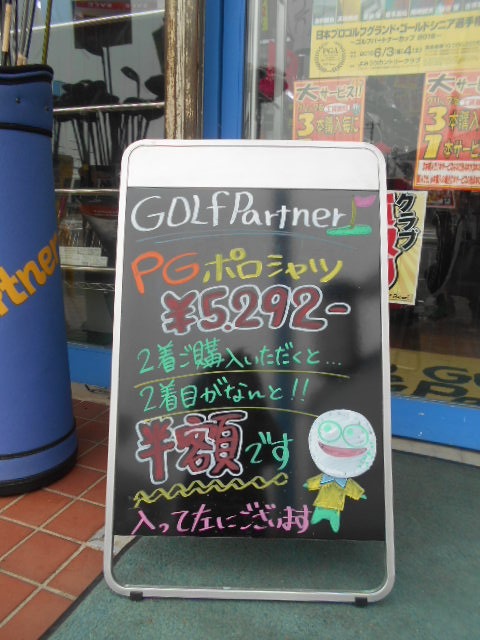 GOLF Partner
PG ポロシャツ
¥5.292-
2着ご購入いただくと...
2着目がなんと!!
半額です
入って左にございます
日本プロゴルフグランド・ゴールドシニア選手権
〜ゴルフパートナーカップ 2016〜
PGA
6/3(金)4(土)
大サービス!!
3本購入毎に
大サービス!!
3本購入
1本サービス
クラブ
rtner